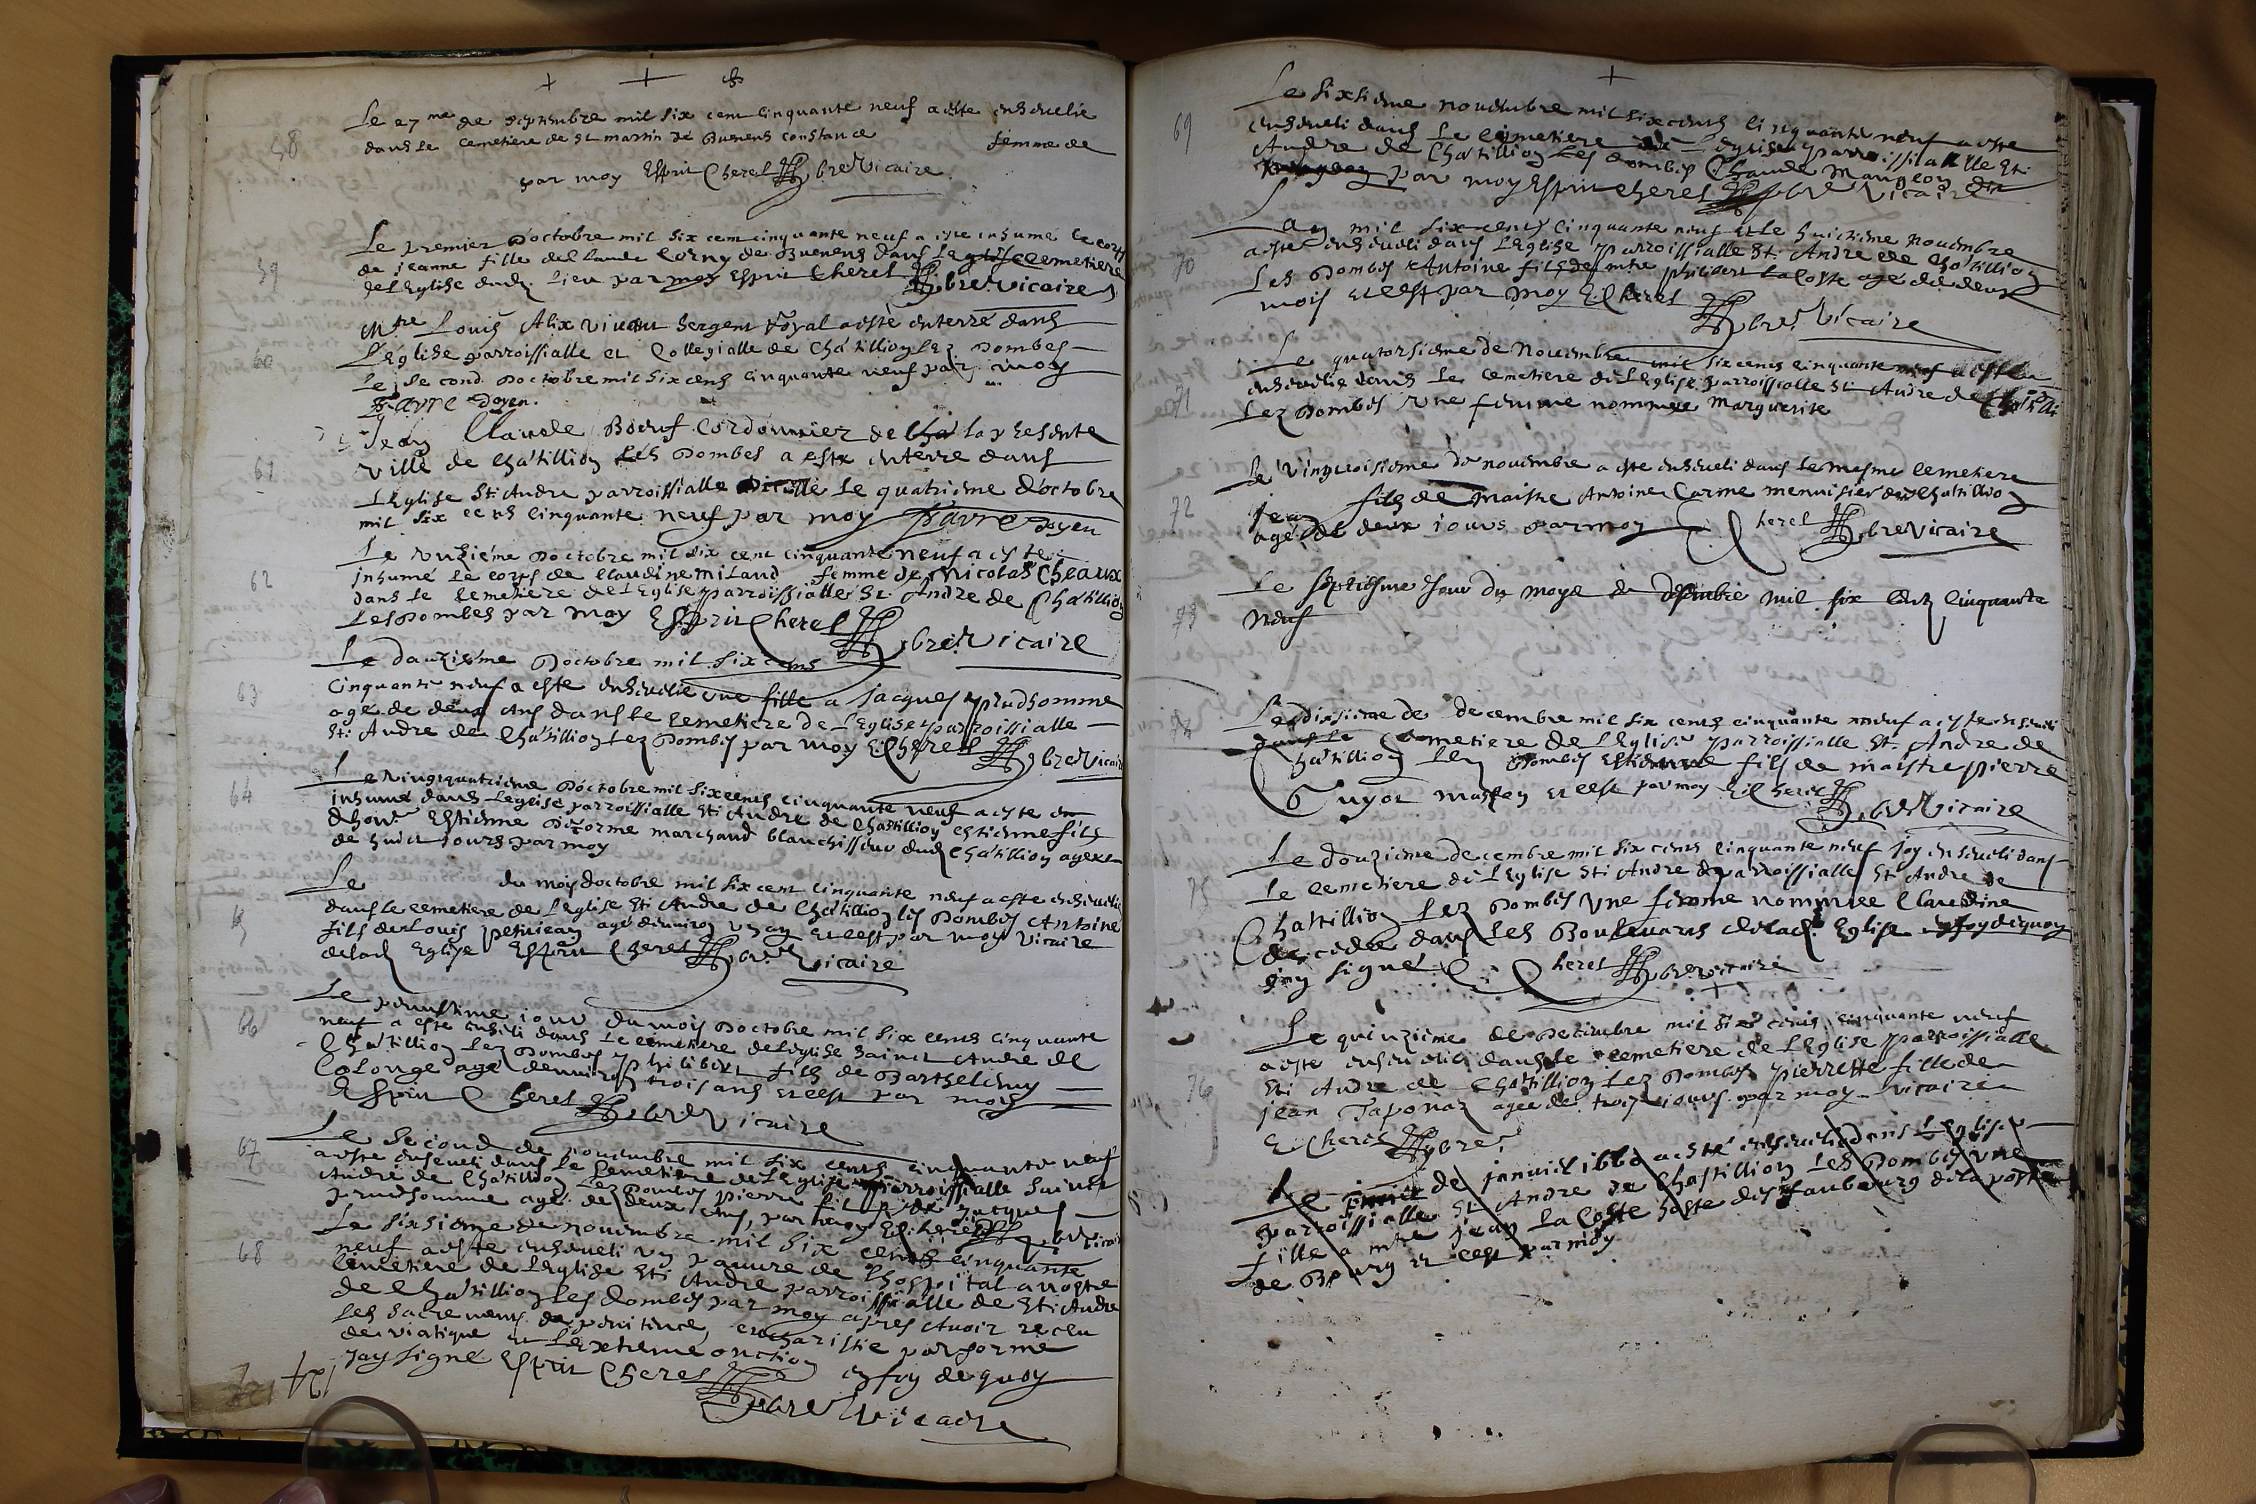 58
Le 27me de septembre mil six cent cinquante neuf a este enseuelie
dans le cemetiere de St martin de Buenens constance femme de
par moy Esprit Cherel pbre Vicaire
59
Le premier d'octobre mil six cent cinquante neuf a este inhumé le corps
de jeanne fille de Claude Corny de Buenens dans le cemetiere
de l'Eglise dud. lieu par moy Esprit Cherel pbre vicaire
60
Mtre Louis Alix viuant sergent Royal a esté enterré dans
l'Eglise parroissialle et Collegialle de Châtillion lez Dombes
le second d'octobre mil six cens cinquante neuf par moy
Favre Doyen.
61
Jean Claude Boeuf Cordonnier de la presente
ville de Châtillion les Dombes a este enterre dans
l'Eglise St. Andre parroissialle le quatrieme d'octobre
mil six cens cinquante neuf par moy Favre Doyen
62
Le unzième d'octobre mil six cent cinquante neuf a este
inhumé le corps de Claudine Miland femme de Nicolas Cheaux
dans le cemetiere de l'Eglise parroissialle St. Andre de Châtillion
les Dombes par moy Esprit Cherel pbre Vicaire
63
Le douzième d'octobre mil six cens
cinquante neuf a este enseuelie une fille a Jacques prudhomme
agé de deux ans dans le cemetiere de l'Eglise parroissialle
St. Andre de Châtillion lez Dombes par moy E. Cherel pbre Vicaire
64
Le vingtquatrieme d'octobre mil six cens cinquante neuf a este
inhumé dans l'eglise parroissialle St. Andre de Chastillion estienne fils
Estienne marchand blanchisseur dud. Châtillion
de huict iours par moy
65
Le du mois d'octobre mil six cent cinquante neuf a este enseueli
dans le cemetiere de l'Eglise St. Andre de Châtillion les Dombes Antoine
fils de Louis agé d'enuiron un an et c'est par moy vicaire
de lad. Eglise Esprit Cherel pbre. Vicaire
66
Le iour du mois d'octobre mil six cens cinquante
neuf a este dans le cemetiere de l'eglise sainct Andre de
Châtillion lez Dombes philibert fils de Barthelemy
Colonge agé d'enuiron trois ans et c'est par moy
Esprit Cherel pbre Vicaire
67
Le second de nouembre mil six cents cinquante neuf
a este enseueli dans le Cemetiere de l'Eglise parroissialle sainct
André de Châtillion lez Dombes pierre fils de Jacques
prudhomme agé de deux ans, par moy E. Cherel pbre Vicaire
68
Le sixsieme de nouembre mil six cents cinquante
neuf a este enseueli un pauure de l'hospital a nostre
cemetiere de l'eglise St. Andre parroissialle de St. Andre
de Châtillion les dombes par moy apres auoir receu
les sacremens de penitence, eucharistie par forme
de viatique et l'extreme onction en foy de quoy
Jay signé Esprit Cherel
pbre Vicaire
124
69
Le sixsieme nouembre mil six cens cinquante neuf a este
enseueli dans le cemetiere de l'eglise parroissialle St.
Andre de Chatillion les dombes Claude Mangeon
par moy Esprit Cherel pbre Vicaire
70
L'an mil six cens cinquante neuf et le huictieme nouembre
a este enseueli dans l'Eglise parroissialle St. Andre de Châtillion
les Dombes Antoine fils de mtre philibert la Coste agé de deux
mois et c'est par moy E. Cherel pbre. Vicaire
71
Le quatorsieme de Nouembre mil six cens cinquante neuf a este
enseuelie dans le cemetiere de l'Eglise parroissialle St. Andre de
lez Dombes une femme nommee Marguerite
72
Le vingtroisieme de nouembre a este enseueli dans le mesme cemetiere
jean fils de Maistre Antoine Carme menuisier de Chatillion
agé de deux iours par moy E. Cherel pbre Vicaire
73
Le septiesme Jour du moys de desembre mil six cent cinquante
neuf
74
Le dixsieme de decembre mil six cents cinquante neuf a este enseueli
dans le Cemetiere de l'Eglise parroissialle St. Andre de
Châtillion lez Dombes Estienne fils de maistre pierre
Guyot et c'est par moy E. Cherel pbre Vicaire
75
Le douzieme decembre mil six cens cinquante neuf Jay enseueli dans
le cemetiere de l'Eglise St. Andre parroissialle St. Andre de
Chastillion lez Dombes une femme nommee Claudine
decedee dans les Bouleuars de lad. Eglise en foy de quoy
Jay signé E. Cherel pbre vicaire
76
Le quinzieme de decembre mil six cens cinquante neuf
a este enseuelie dans le cemetiere de l'Eglise parroissialle
St. Andre de Châtillion lez Dombes pierrette fille de
jean Taponaz agee de trois iours par moy vicaire
E. Cherel pbre.
Le de januier 1660 a esté enseuelie dans l'Eglise
parroissialle St Andre de Chastillion les Dombes une
fille a mtre jean la Coste hoste des fauboourg de la porte
de Bourg et c'est par moy